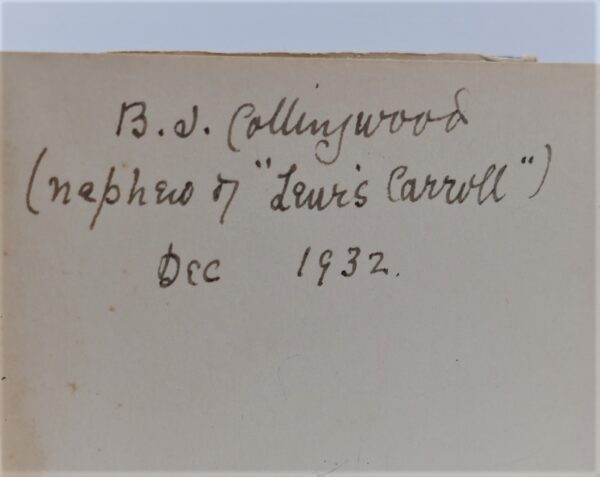 B. J. Collingwood
(nephew of "Lewis Carroll")
Dec 1932.